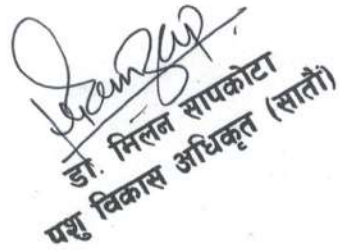 डा. मिलन सापकोटा
पशु विकास अधिकृत (सातौं)